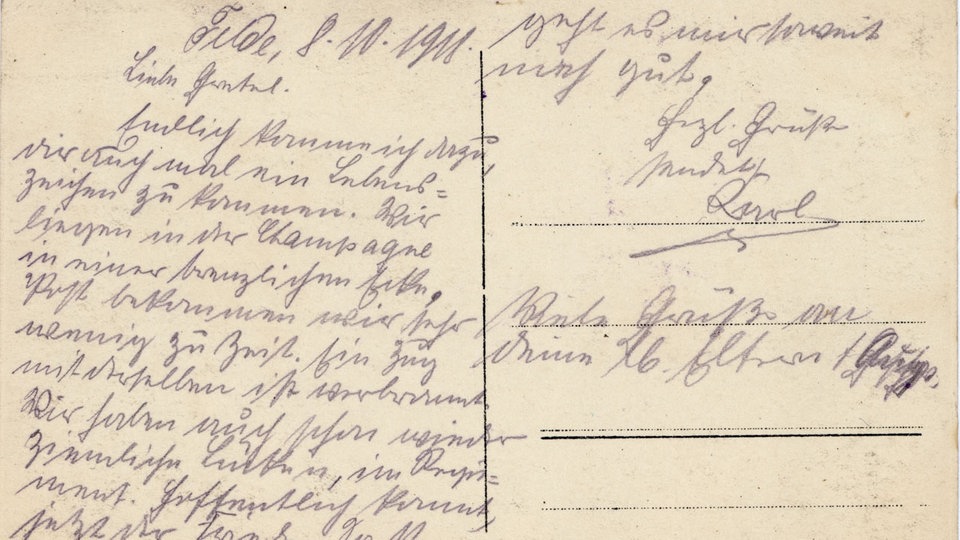 Felde, 8. 10. 1918.
Liebe Gretel.
Endlich komme ich dazu,
dir auch mal ein Lebens=
zeichen zu kommen. Wir
liegen in der Champagne
in einer brenzlichen Ecke.
Post bekommen wir sehr
wenig zu Zeit. Ein Zug
mit derselben ist verbrannt.
Wir haben auch schon wieder
ziemliche Lücken, im Regi=
ment. Hoffentlich kommt,
jetzt der
geht es mir soweit
noch gut.
Herzl. Grüße
sendet
Karl
Viele Grüße an
deine lb. Eltern